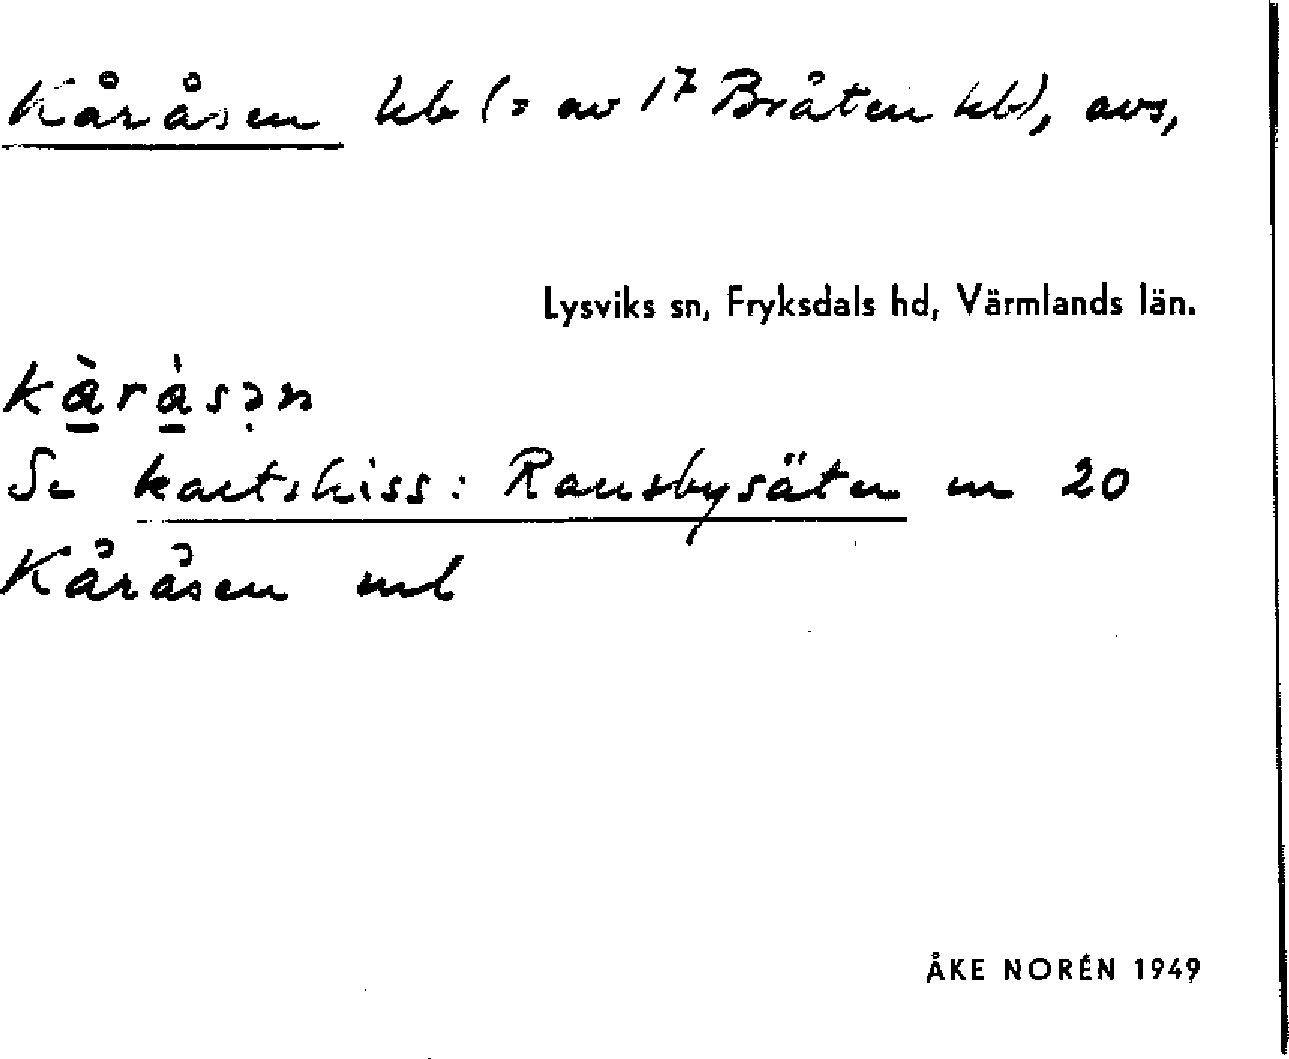 Kåråsen hb (= av 1⁷ Bråten hb), avs,
Lysviks sn, Fryksdals hd, Värmlands län.
kàråsən
Se kartskiss: Ransbysäter nr 20
Kåråsen
ÅKE NORÉN 1949